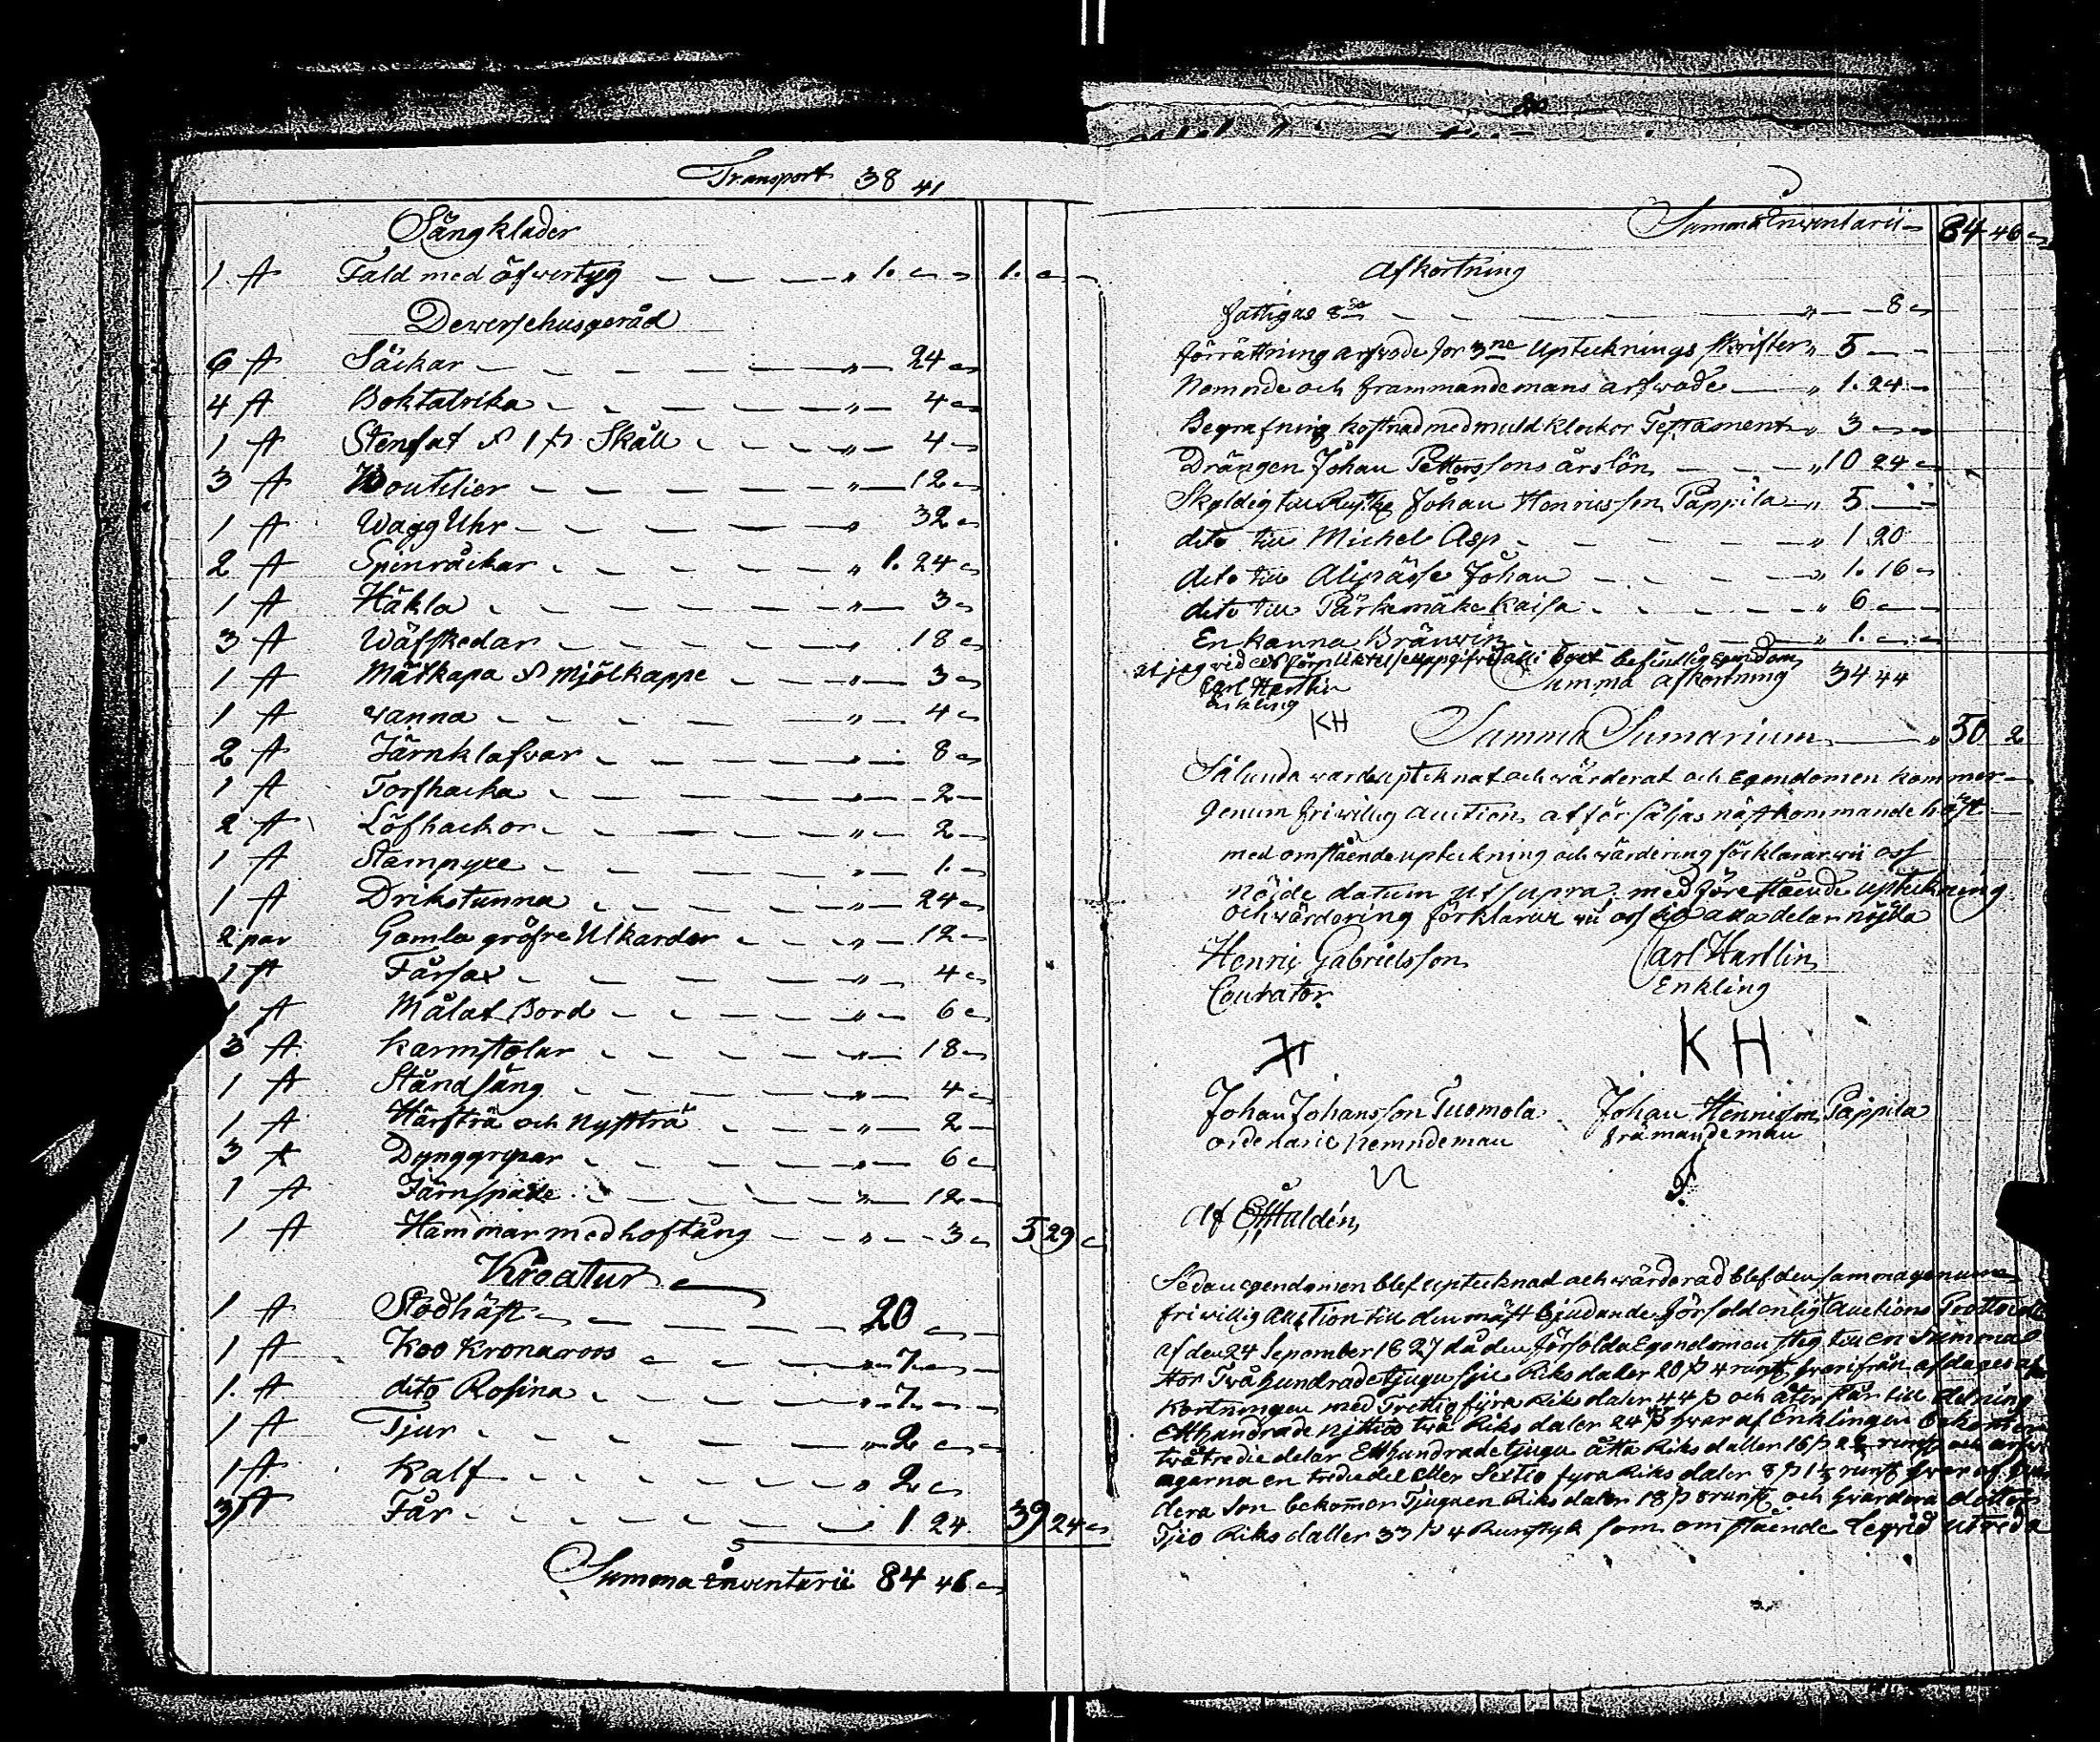 Transport 38 41
Sängklader
1 st Fald med öfwertyg " 1. 1.
Dewersehusgeråd
6 st Säckar " 24
4 st Boktalrika " 4
1 st Stenfat & 1 st Skåll " 4
3 st Boutelier " 12
1 st Wägg Uhr " 32
2 st Spinråckar " 1. 24
1 st Häkla " 3
3 st Wäfskedar " 18
1 st Mätkapa & Mjölkappe " 3
1 st vanna " 4
2 st Järnklafvar " 8
1 st Torfhacka " 2
2 st Löfhackor " 2
1 st Stampyxe " 1.
1 st Drikstunna " 24
2 par Gamla gröfre Ulkardor " 12
1 st Fårsax " 4
1 st Målat Bord " 6
3 st Karmstolar " 18
1 st Ståndsäng " 4
1 st Härfträ och Nystträ " 2
3 st Dynggripar " 6
1 st Järnspade " 12
1 st Hammar med hoftång " 3 5 29
Kreatur
1 st Stodhäst 20
1 st Koo Kronaroos " 7
1. st dito Rosina " 7
1 st Tjur " 2
1 st Kalf " 2
3 st Får 1 24 39 24
Summa Inventarii 84 46
Summa Inventarii 84 46
Afkortning
fattigas " 8
förrättning arfwode for 3ne Uptecknings skrifter " 5
Nemnde och frammande mans arfwode " 1. 24
Begrafning kostnad med muld klockor Testament " 3
Drängen Johan Pettersons årslön " 10 24
Skyldig till Johan Henricsson Pappila " 5
dito till Michel Asp " 1 20
dito till Alipässe Johan 1. 16
dito till Pärkemäke Kaisa " 6
En kanna Bränwin " 1.
at jag vid förpliktelse uppgifvit alt i boet befintlig egendom
Carl Hartlin Summa afkortning 34 44
Enkling
KH
Summa Sumarium " 50 2
Sålunda warde uptecknat och wärderat och Egendomen kommer
genum friwilig auction at försäljas nästkommande höst
med omstående uptekning och wärdering förklarar wii oss
Nöjde datum ut supra, med förestående uptekning
och wärdering förklarar wii oss alla delar nöjda
Henric Gabrielsson Carl Hartlin
Courator Enkling
KH
Johan Johansson Tuomola Johan Henricsson Pappila
ordenarie Nemndeman främandeman
af
Sedan egendomen blef upteknad och wärderad blef den samma genum
friwillig auction till den mäst bjudande försold enligt auctions
af den 24 September 1827 då den försolda Egendomen steg till en Summa
stor Twåhundrade tjugu sju Riks daler 20 s 4 runst hvarifrån afdages af
kortningen med Trettio fyra Riks daler 44 s och åter står till delning
Etthundrade nittio två Riks daler 24 s hvar af Enklingen bekommer
två tredie delar Etthundrade tjugu åtta Riks daller 16 s runst och arfw
agarna en tredie del eller Sextio fyra Riks daler 8 s runst hvar af
dera son bekommer Tjugu en Riks daler 18 s 8 runst och hvardera dotter
Tjio Riks daller 33 s 4 Runstyk som omstående utreda